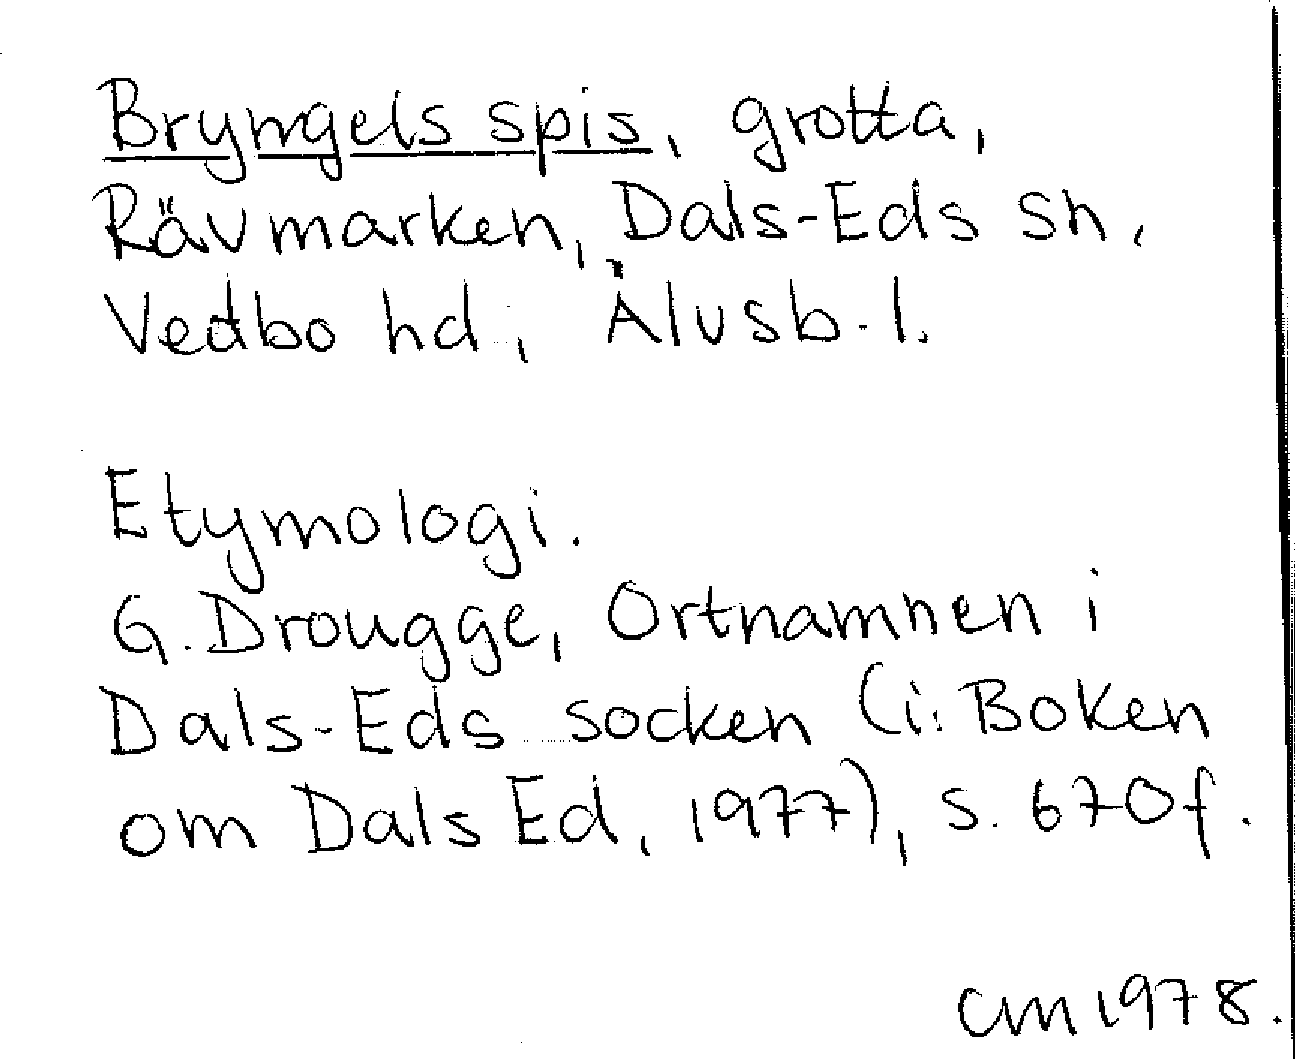 Bryngels spis, grotta,
Rävmarken, Dals-Eds sn,
Vedbo hd, Älvsb. l.
Etymologi.
G. Drougge, Ortnamnen i
Dals-Eds socken (i: Boken
om Dals Ed, 1977), s. 670f.
CM 1978.